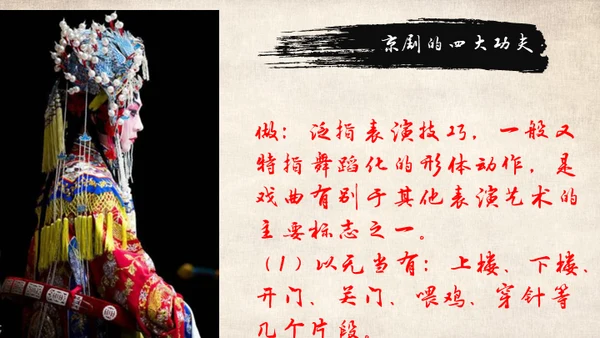 京剧的四大功夫
做：泛指表演技巧，一般又
特指舞蹈化的形体动作，是
戏曲有别于其他表演艺术的
主要标志之一。
（1）以无当有：上楼、下楼、
开门、关门、喂鸡、穿针等
几个片段。